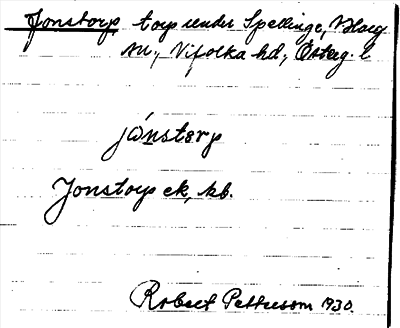 Jonstorp torp under Spellinge, Västg
sn., Vifolka hd., Österg. l
jȯnstɵrp
Jonstorp ek, kb.
Robert Pettersson 1930.